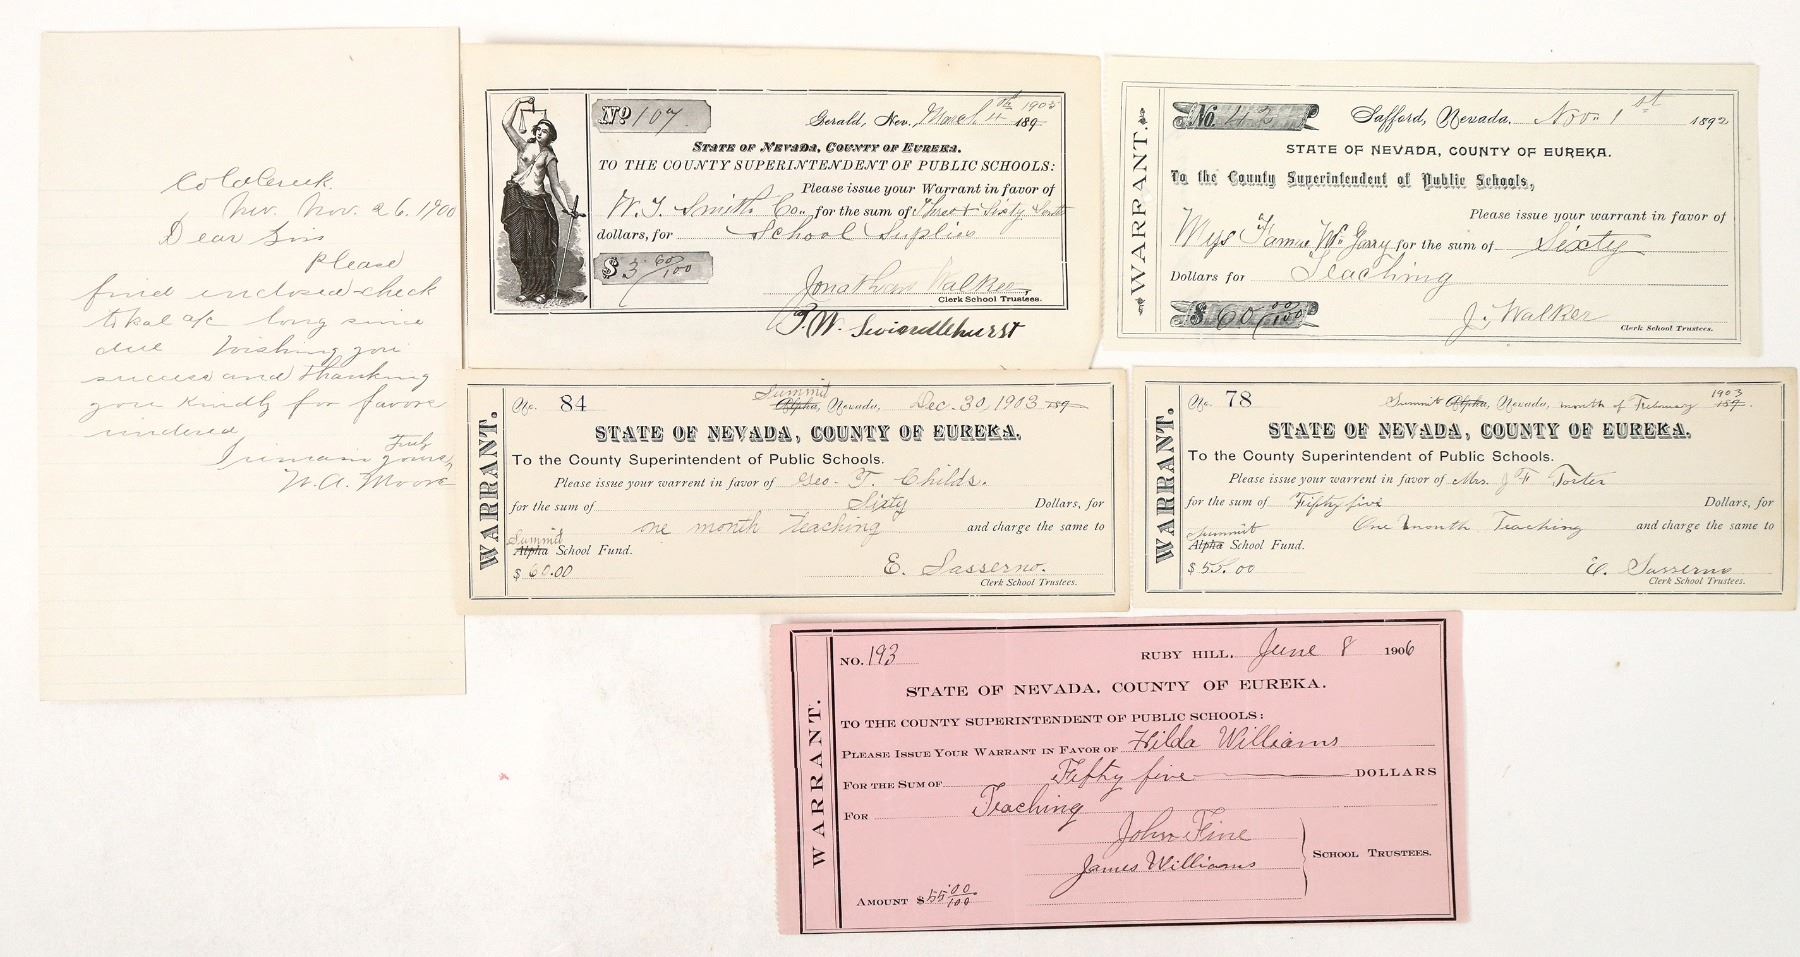 Cold Creek.
Nev. Nov. 26. 1900
Dear Sir
Please
find enclosed check
to bal a/c long since
due Wishing you
success and thanking
you kindly for favors
rendered
I remain Truly yours,
W. A. Moore
No 107
Gerald, Nev., March 4th 1905 189
STATE OF NEVADA, COUNTY OF EUREKA.
TO THE COUNTY SUPERINTENDENT OF PUBLIC SCHOOLS:
Please issue your Warrant in favor of
W. J. Smith Co. for the sum of Three & Sixty
dollars, for School Suplies
$ 3 60/100
Jonathan Walker,
Clerk School Trustees.
WARRANT.
No. 42
Safford, Nevada. Nov. 1st 1892
STATE OF NEVADA, COUNTY OF EUREKA.
To the County Superintendent of Public Schools,
Please issue your warrant in favor of
for the sum of Sixty
Dollars for Teaching
$ 60 00/100
J. Walker
Clerk School Trustees.
WARRANT.
No. 84
Summit
Alpha, Nevada, Dec. 30, 1903 189
STATE OF NEVADA, COUNTY OF EUREKA.
To the County Superintendent of Public Schools.
Please issue your warrent in favor of Geo. T. Childs.
for the sum of Sixty Dollars, for
one month teaching and charge the same to
Summit
Alpha School Fund.
$ 60.00
E. Sasserno.
Clerk School Trustees.
WARRANT.
No. 78
Summit Alpha, Nevada, month of February 1903 189
STATE OF NEVADA, COUNTY OF EUREKA.
To the County Superintendent of Public Schools.
Please issue your warrent in favor of Mrs. J F Torter
for the sum of Fifty five Dollars, for
One month Teaching and charge the same to
Summit
Alpha School Fund.
$ 55.00
E. Sasserno
Clerk School Trustees.
WARRANT.
NO. 193
RUBY HILL, June 8 1906
STATE OF NEVADA, COUNTY OF EUREKA.
TO THE COUNTY SUPERINTENDENT OF PUBLIC SCHOOLS:
PLEASE ISSUE YOUR WARRANT IN FAVOR OF Hilda Williams
FOR THE SUM OF Fifty five DOLLARS
FOR Teaching
John Fine
James Williams
SCHOOL TRUSTEES.
AMOUNT $ 55 00/100